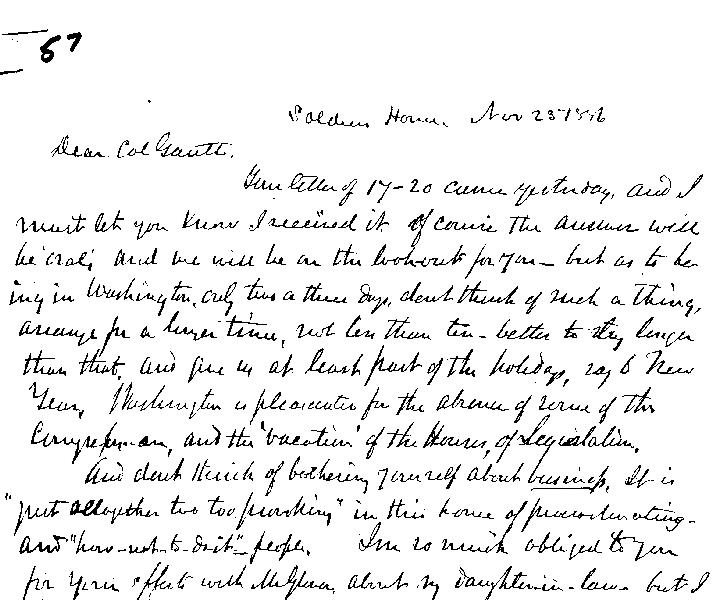 57
Soldiers Home. Nov 25 1886
Dear Col Gantt.
Your letter of 17-20 came yesterday, and I
must let you know I received it Of course the answer will
be 'oral', and we will be on the lookout for you - but as to be
ing in Washington, only two or three days, dont think of such a thing,
arrange for a longer time, not less than ten - better to stay longer
than that, and give us at least part of the holidays, say to New
Year, Washington is pleasanter for the absence of some of the
Congressmen, and the 'vacation' of the Houses, of Legislation.
And dont think of bothering yourself about business, It is
"just altogether too too provoking" in this home of procrastinating -
and "how-not-to-do-it" - people. I'm so much obliged to you
for your efforts with about my daughter-in-law - but I